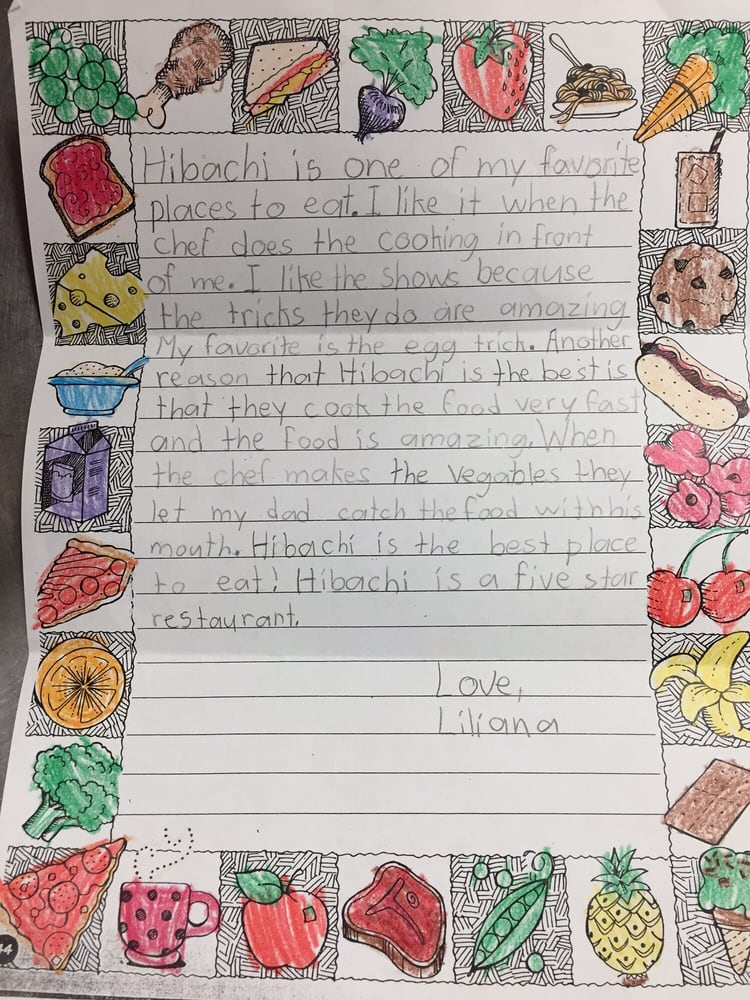 Hibachi is one of my favorite
places to eat. I like it when the
chef does the cooking in front
of me. I like the shows because
the tricks they do are amazing
My favorite is the egg trick. Another
reason that Hibachi is the best is
that they cook the food very fast
and the food is amazing. When
the chef makes the vegables they
let my dad catch the food with his
mouth. Hibachi is the best place
to eat! Hibachi is a five star
restaurant.
Love,
Liliana
44